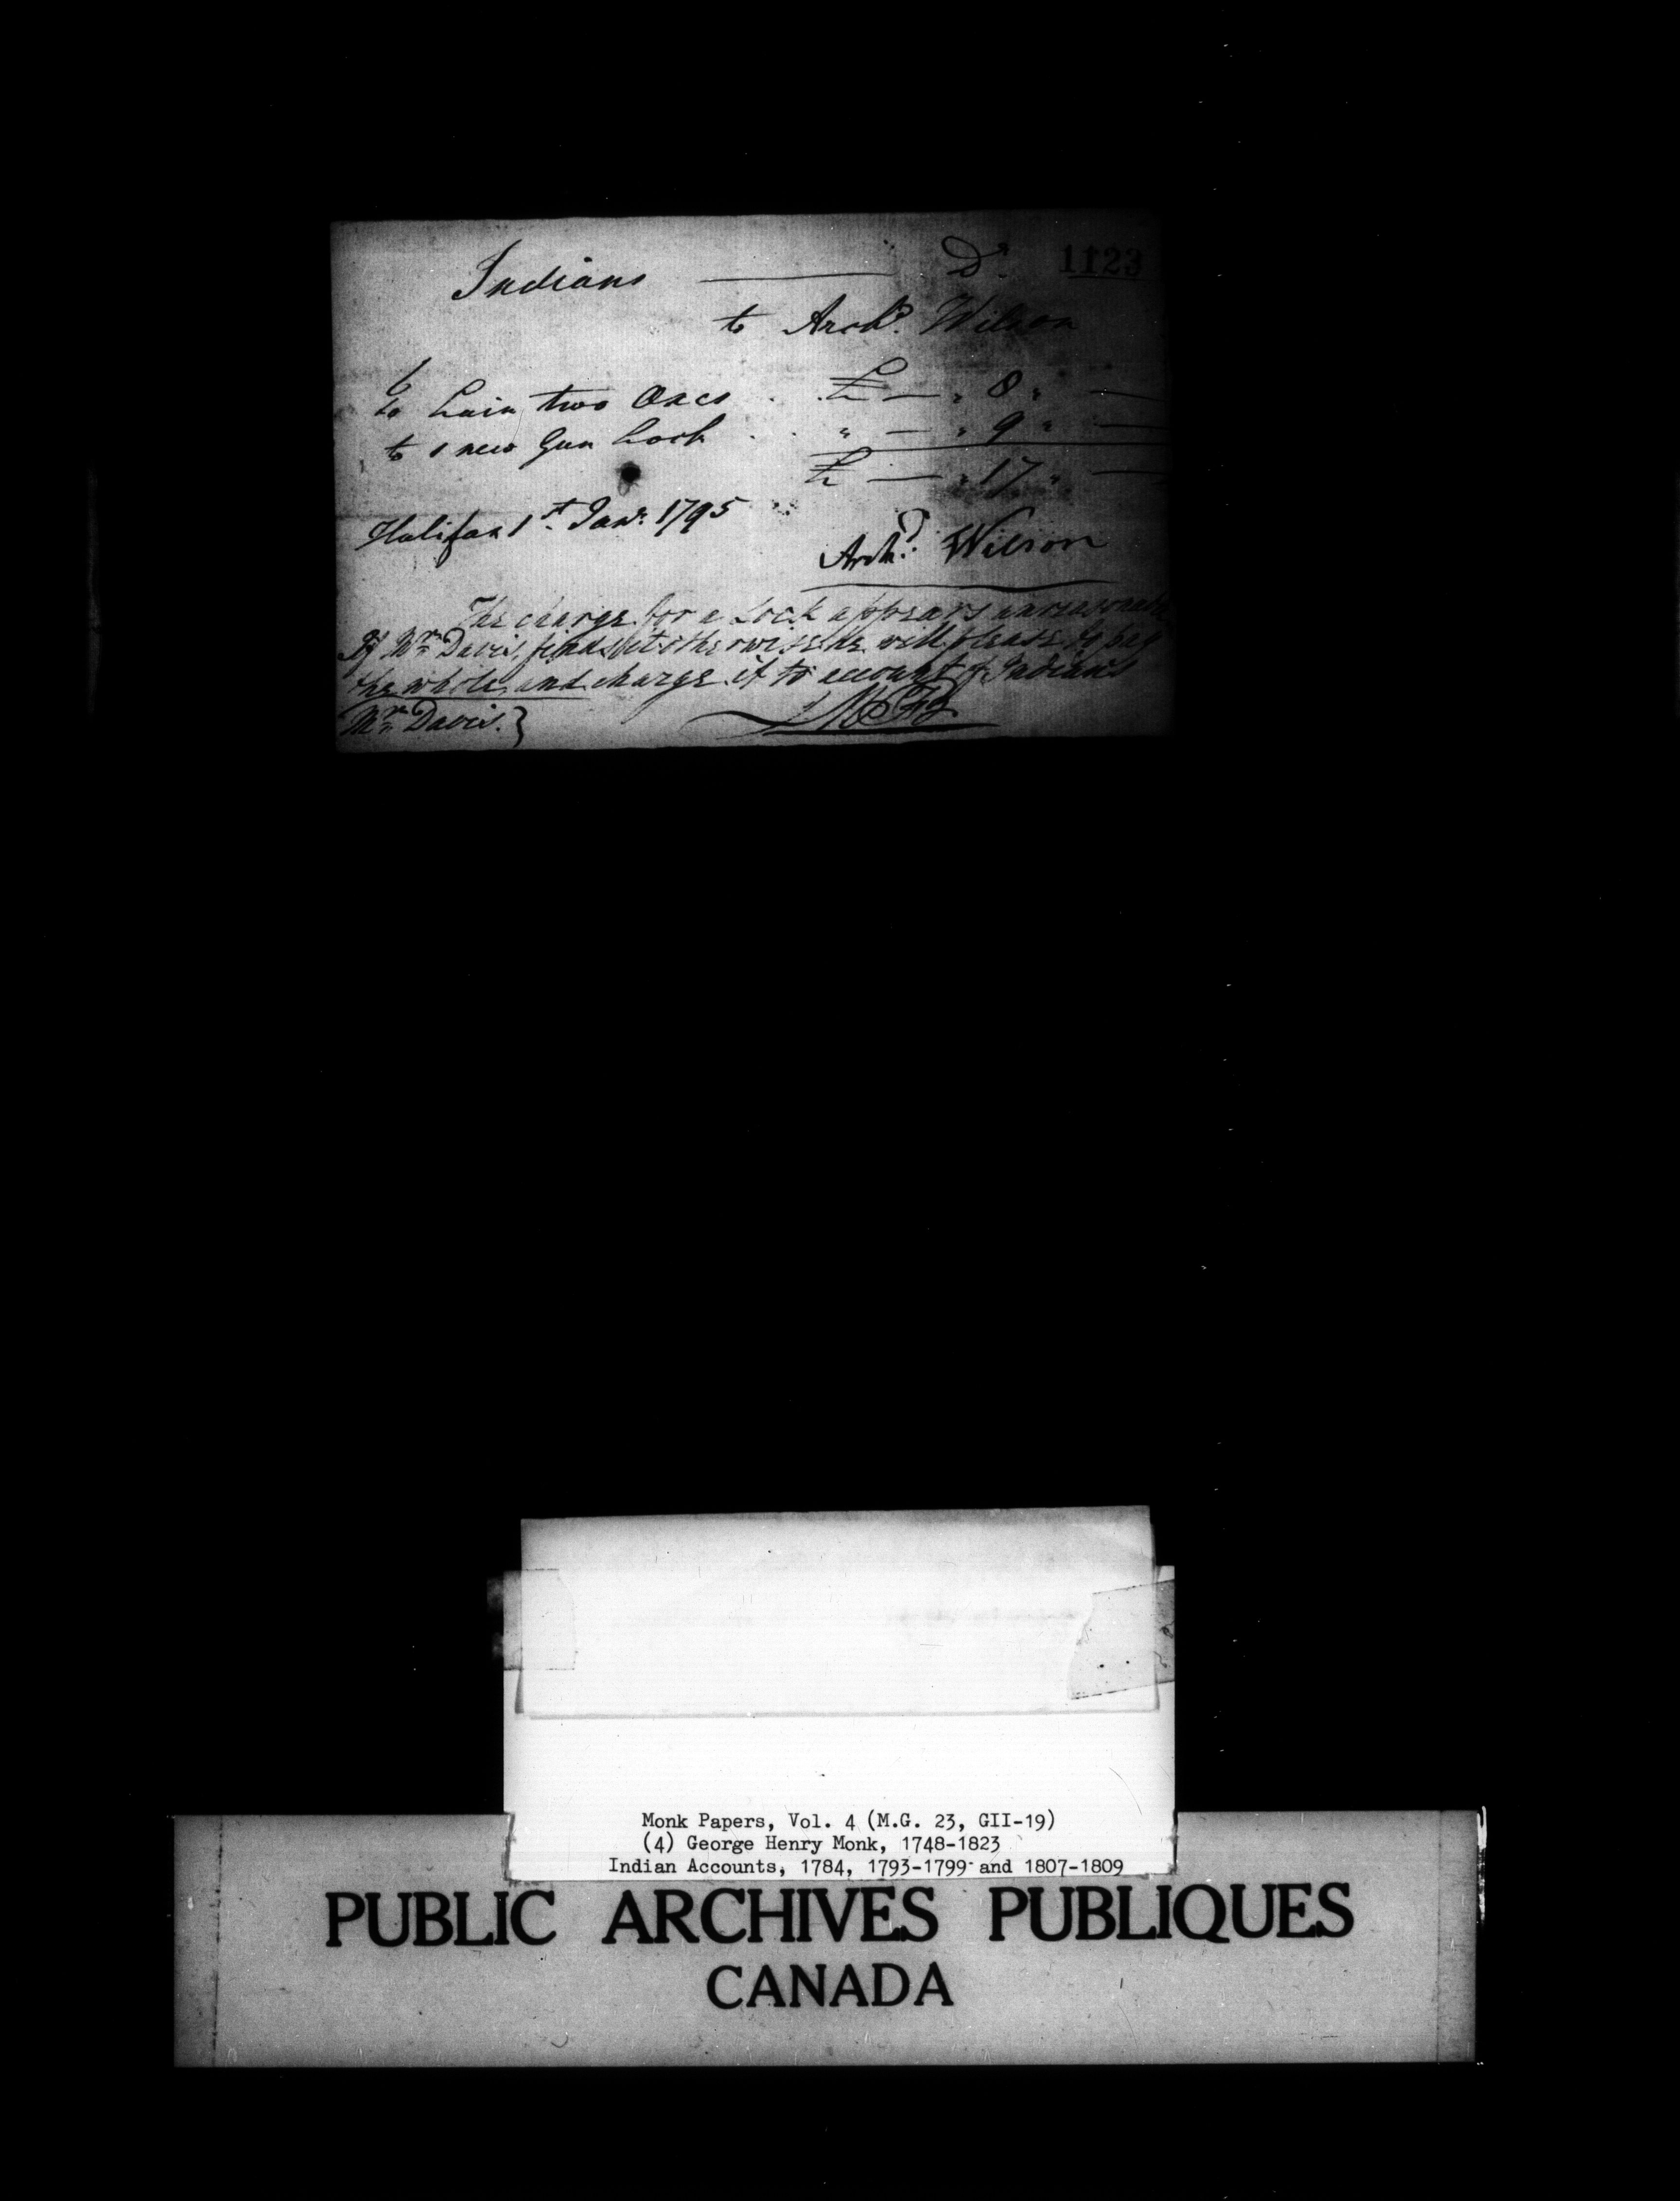 Indians — Dr. 1123
to Archd. Wilson
to Lain two Axes . . £ — " 8 " —
to 1 new Gun Lock . . " — " 9 " —
£ — " 17 " —
Halifax 1st Janr. 1795
Archd. Wilson
The charge for a Lock appears unreasonable
If Mr. Davis, finds it otherwise he will please to pay
the whole, and charge it to account of Indians
Mr. Davis. }
Monk Papers, Vol. 4 (M.G. 23, GII-19)
(4) George Henry Monk, 1748-1823
Indian Accounts, 1784, 1793-1799 and 1807-1809
PUBLIC ARCHIVES PUBLIQUES
CANADA